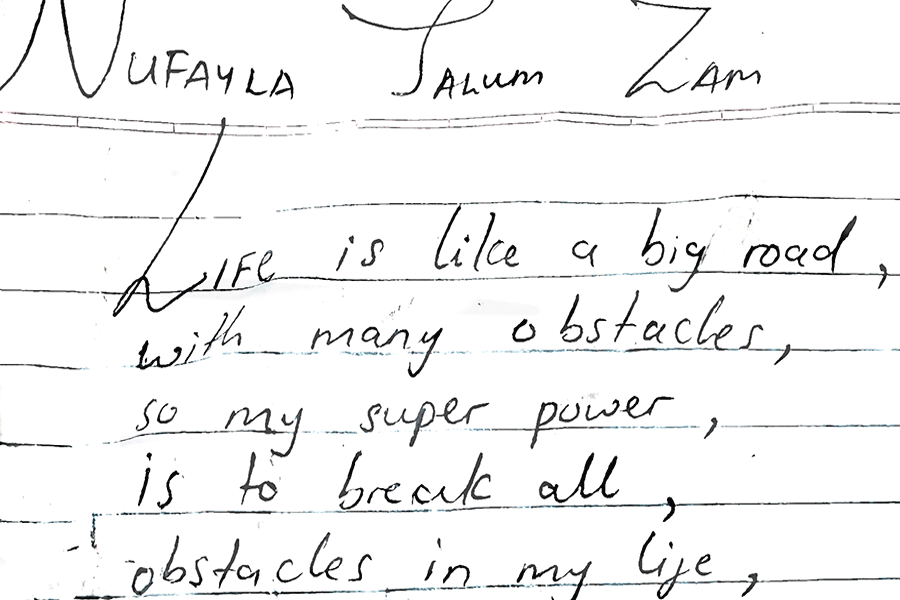 NUFAYLA SALUM ZAM
LIFE is like a big road,
with many obstacles,
so my super power,
is to break all,
obstacles in my life,